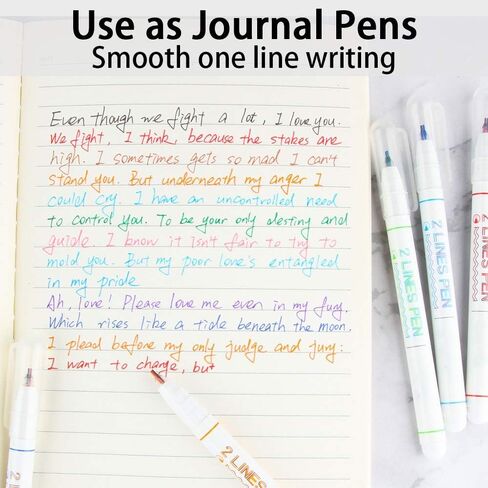 Use as Journal Pens
Smooth one line writing
Even though we fight a lot, I love you.
We fight, I think, because the stakes are
high. I sometimes gets so mad I can't
stand you. But underneath my anger I
could cry. I have an uncontrolled need
to control you. To be your only destiny and
guide. I know it isn't fair to try to
mold you. But my poor love's entangled
in my pride
Ah, love! Please love me even in my fury.
Which rises like a tide beneath the moon.
I plead before my only judge and jury:
I want to change, but
2 LINES PEN
2 LINES PEN
2 LINES PEN
2 LINES